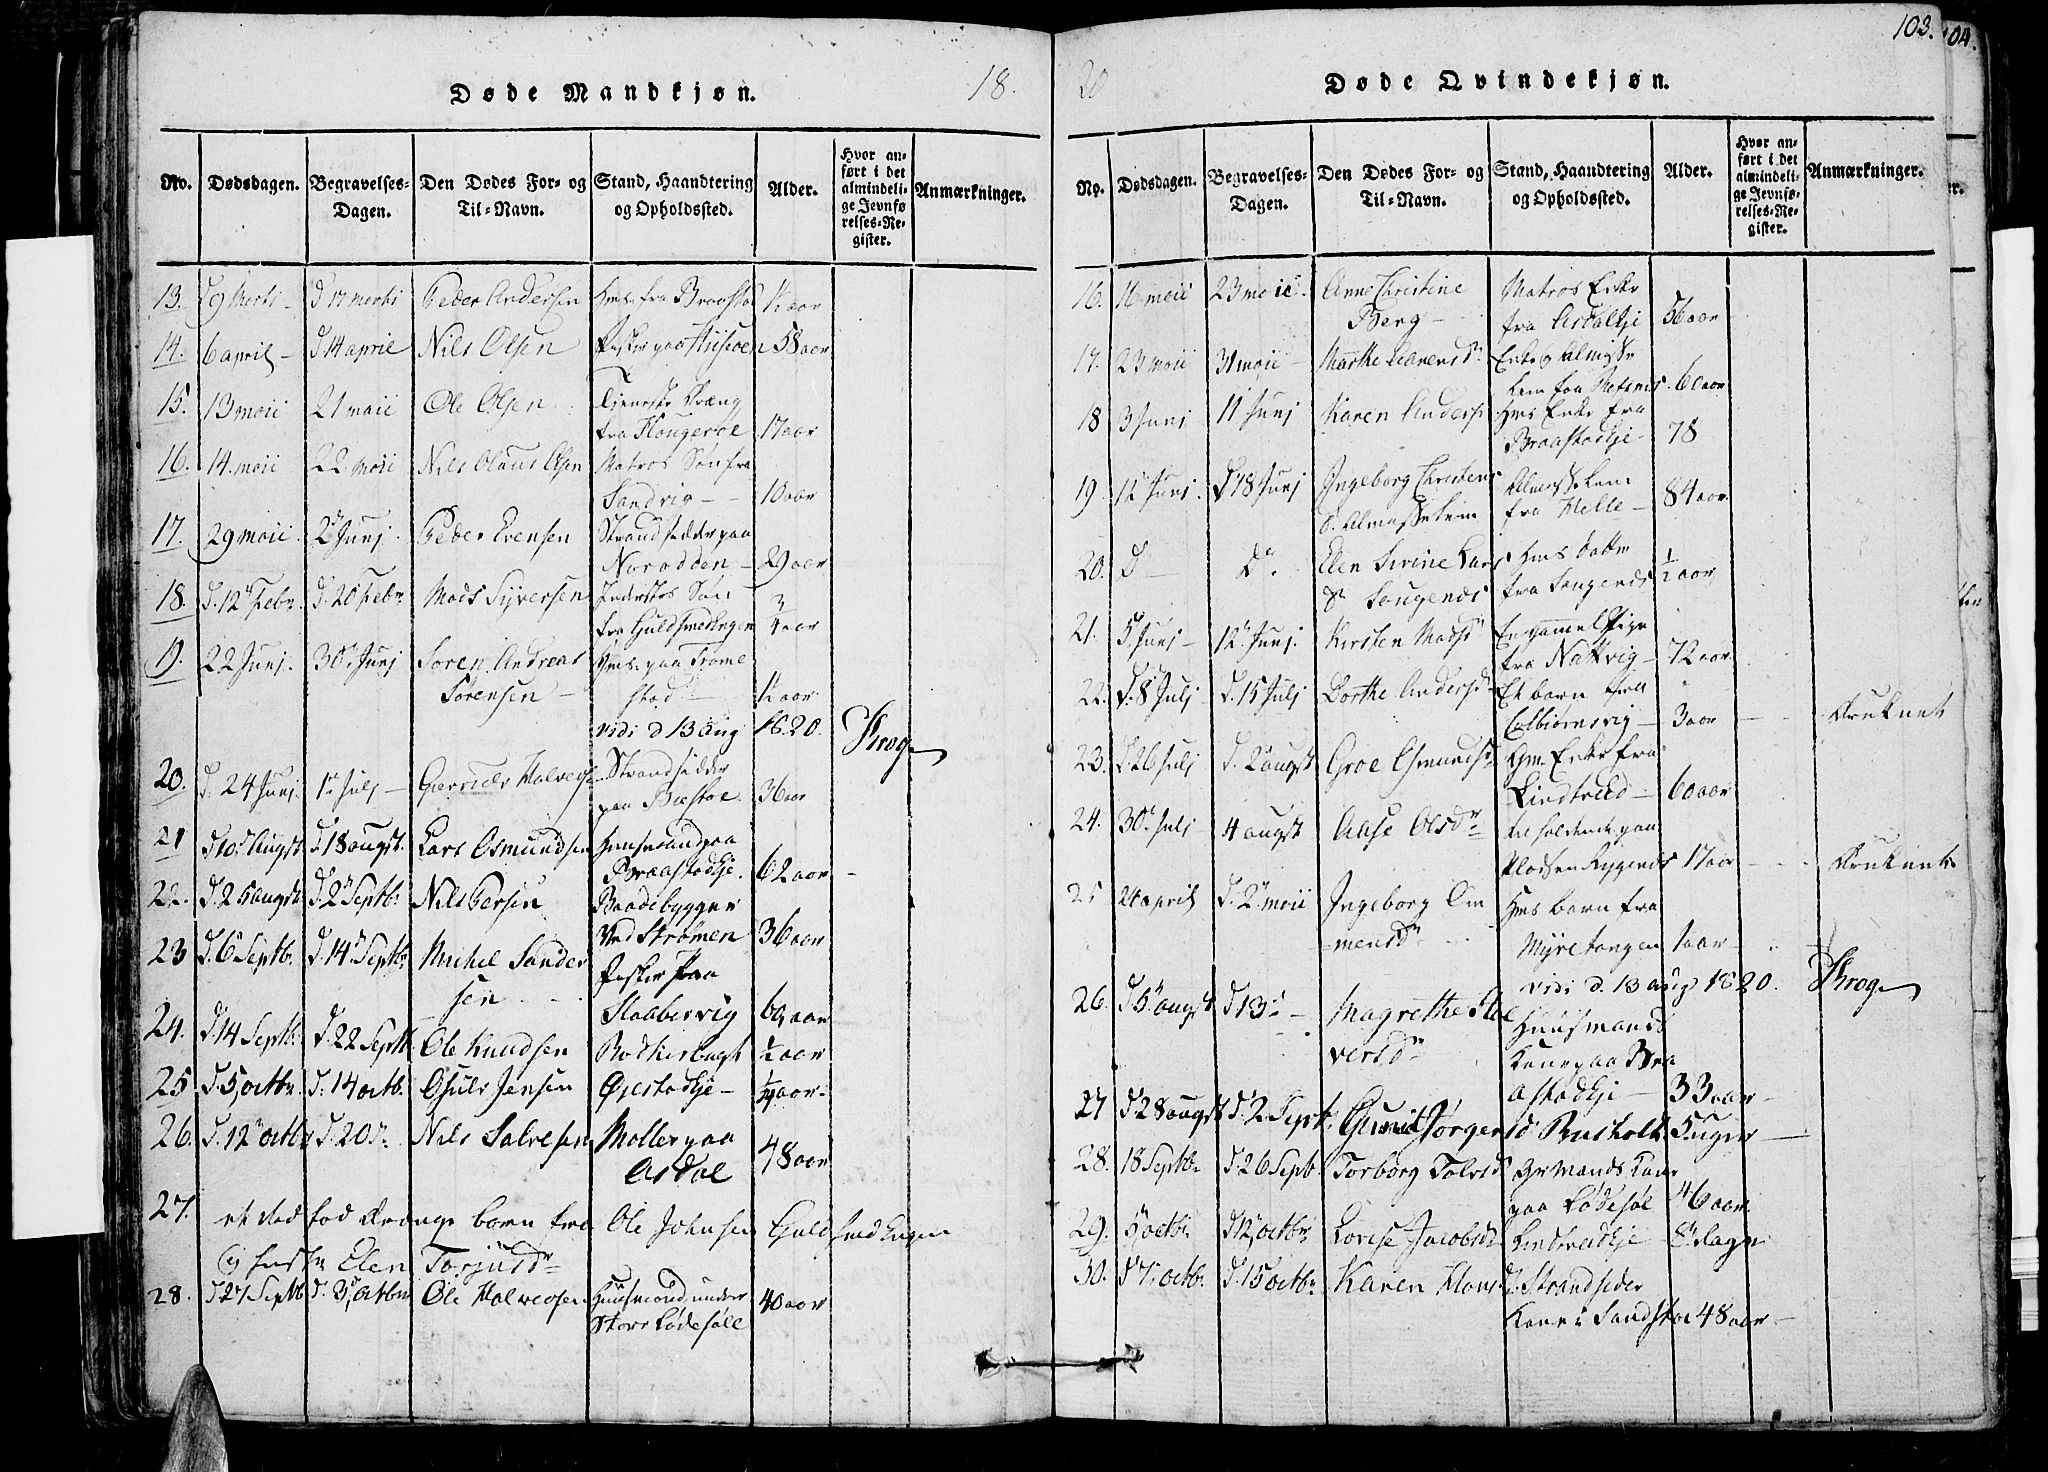 Døde Mandkjøn. 18.
No. Dødsdagen. Begravelses-Dagen. Den Dødes For- og Til-Navn. Stand, Haandtering og Opholdssted. Alder. Hvor anført i det almindelige Jevnførelses-Register. Anmærkninger.
13. 9 Marti d 17 marti Peder Andersen Hms. fra Braastad 1½ aar
14. 6 april d 14 april Nils Olsen Fisker paa 58 aar
15. 13 maii 21 maii Ole Olsen Tieneste Dreng
fra Flougerøe 17 aar
16. 14. maii 22 maii Nils Olaus Olsen Matros Søn fra
Sandvig 10 aar
17. 29 maii 2 Junj Peder Evensen Strandsidder paa
Narodden 29 aar
18. d. 12 Febr d. 20 Febr Mads Syversen Inderstes Søn
fra Guldsmedengen ¾ aar
19. 22 Junj. 30 Junj Søren Andreas Hms. paa Trome
Sørensen stad ½ aar
vidi d 13 Aug 1820. Krog
20. d. 24 Junj. 1 Julj Halvors Strandsidder
paa Biestøe. 36 aar
21 d 10 Augst d. 18 augst. Lars Osmundsen Huusmand paa
Braastadkje. 62 aar
22. d. 25 augst d. 2 Septbr Nils Persen Baadebygger
ved Strømen 36 aar
23 d. 6 Septbr. d. 14 Septbr Michel Sander Fisker paa
sen Slabbervig 60 aar
24. d. 14 Septbr. d. 22 Septb Ole Knudsen Bødkerbugt ½ aar
25 d 5 octbr d. 14 octb. Jensen Øiestadkje ¼ aar
26. d. 12 octbr d. 20 Nils Salvesen Møller paa
Asdal 48 aar
27. et død fød Drenge barn fra Ole Johnsen Guldsmedengen
Elen Torjusdr
28. d 27 Septb d. 3 octbr Ole Halvorsen Huusmand under
Store Lødesøll 40 aar
20 Døde Qvindekjøn. 103.
104.
No. Dødsdagen. Begravelses-Dagen. Den Dødes For- og Til-Navn. Stand, Haandtering og Opholdssted. Alder. Hvor anført i det almindelige Jevnførelses-Register. Anmærkninger.
16. 16 maii 23 maii. Anne Christine Matros Enke
Berg fra Asdalkje 56 aar
17. 23 maii 31 maii Marthe Enke Almisse
Lem fra 60 aar
18 3 Junj 11 Junj Karen Anders Hms Enke fra
Braastadkje 78
19. 12 Junj. d 18 Junj Ingeborg Christens Almisselem
d. Almisselem fra Helle 84 aar
20. d d. Elen Sirine Lars Hms datter
d Longenæs fra Longenæs ½ aar
21. 5 Junj 12 Junj. Kirsten Madsd En gammel Pige
fra Nattvig 72 aar
22. d. 8 Julj d. 15 Julj Dorthe Andersd Et barn fra
Colbiørnsvig 3 aar druknet
23. d 26 Julj d. 2 augst Groe Osmundsd Gm. Enke fra
Lindtved 60 aar
24. 30 Julj 4 augst Aase Olsdr tilholdende paa
Pladsen 17 aar druknet
25 24 april d. 2 maii Ingeborg Om Hms barn fra
mensd Myretangen 1 aar
vidi d. 13 aug 1820. Krog
26. d 5 augst d 13 Magrethe Hal Huusmands
versdr Kone paa Bra
astadkje 33 aar
27 d 28 augst d. 2 Septb. Gunild Jørgensd Busholt 5 uger
28. 18 Septbr d. 26 Septb. Torborg Tolvsd Grmands Kone
paa Lødesøl 46 aar
29. 5 octbr d 12 octbr Lovise Jacobsd Lindtvedkje 8 dage
30. d 7 octbr. d. 15 octbr Karen Hansd. Strandsidder
Kone i Sandstø 48 aar